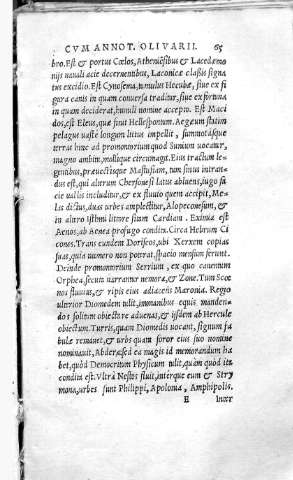 CVM ANNOT. OLIVARII. 65
bro. Est & portus Cœlos, Atheniēsibus & Lacedæmo
nijs nauali acie decernentibus, Laconicæ classis signa
tus excidio. Est Cynosema, tumulus Hecubæ, siue ex fi
gura canis in quam conuersa traditur, siue ex fortuna
in quam deciderat, humili nomine accepto. Est Maci
dos, est Eleus, quæ finit Hellespontum. Aegæum statim
pelagus uastè longum litus impellit, summotasque
terras hinc ad promontorium quod Sunium uocatur,
magno ambitu mollíque circumagit. Eius tractum le-
gentibus, præuectisque Mastusiam, tum sinus intran-
dus est, qui alterum Cherſonesi latus abluens, iugo fa
cie uallis includitur, & ex fluuio quem accipit, Me-
las dictus, duas urbes amplectitur, Alopeconesum, &
in altro Isthmi litore sitam Cardian. Eximia est
Aenos, ab Aenea profugo condita. Circa Hebrum Ci
cones. Trans eundem Doriscos, ubi Xerxem copias
suas, quia numero non poterat, spacio mensum ferunt.
Deinde promontorium Serrium, & quo canentem
Orphea secuta narrantur nemora, & Zone. Tum Scœ
nos fluuius, & ripis eius adiacens Maronia. Regio
ulterior Diomedem tulit, immanibus equis mandan-
dos solitum obiectare aduenas, & ijsdem ab Hercule
obiectum. Turris, quam Diomedis uocant, signum fa
bulæ remanet, & urbs quam soror eius suo nomine
nominauit, Abdera, sed ea magis id memorandum ha
bet, quòd Democritum Physicum tulit, quàm quòd ita
condita est. Vltrà Nestos fluit, intérque eum & Stry
mona, urbes sunt Philippi, Apolonia, Amphipolis.
E Inter